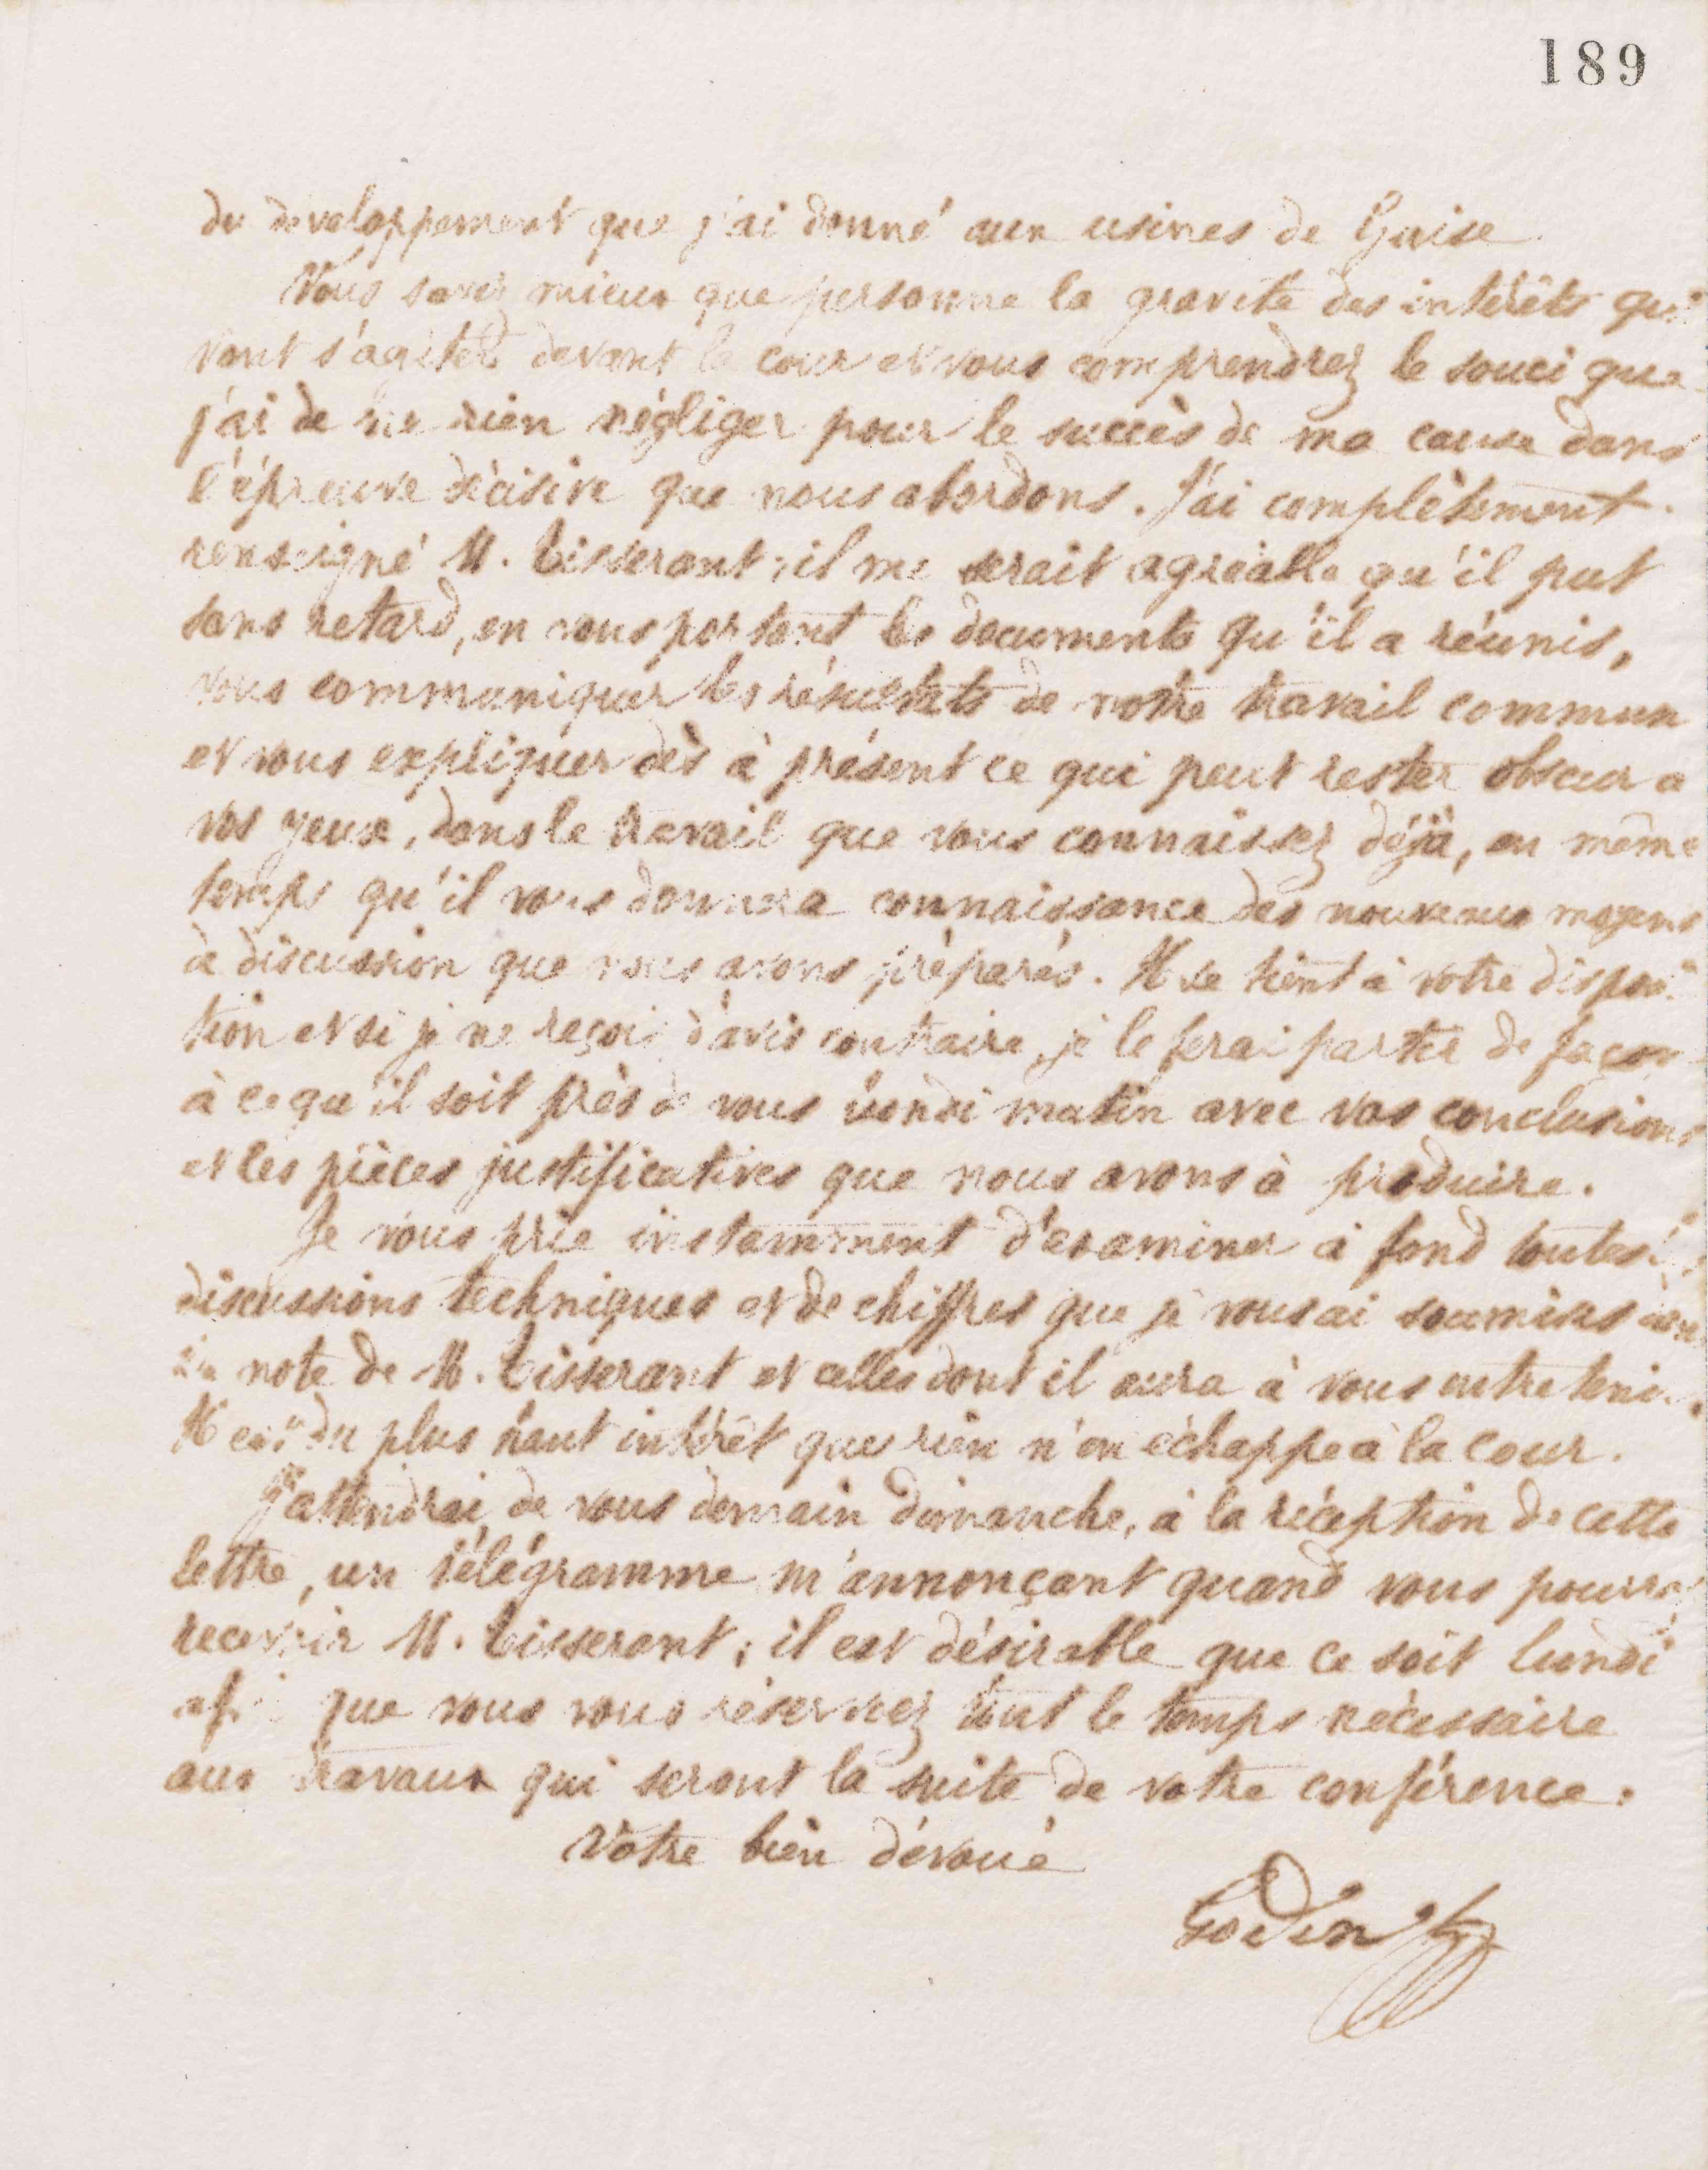 189
du developpement que j'ai donné aux usines de Guise.
Vous savez mieux que personne la gravité des intérêts qui
vont s'agiter devant la cour et vous comprendrez le souci que
j'ai de ne rien négliger pour le succès de ma cause dans
l'épreuve décisive que nous abordons. J'ai complètement
renseigné M. Tisserant; il me serait agréable qu'il put
sans retard, en vous portant les documents qu'il a réunis,
vous communiquer les résultats de notre travail commun
et vous expliquer dès à présent ce qui peut rester obscur a
vos yeux, dans le travail que vous connaissez déjà, en même
temps qu'il vous donnera connaissance des nouveaux moyens
de discussion que nous avons préparés. Il se tient à votre disposi
tion et si je ne reçois d'avis contraire, je le ferai partir de façon
à ce qu'il soit près de vous lundi matin avec vos conclusions
et les pièces justificatives que nous avons à produire.
Je vous prie instamment d'examiner à fond toutes
discussions techniques et de chiffres que je vous ai soumises
note de M. Tisserant et celles dont il aura à vous entretenir.
Il est du plus haut intérêt que rien n'en échappe à la cour.
J'attendrai de vous demain dimanche, à la réception de cette
lettre, un télégramme m'annonçant quand vous pourrez
recevoir M. Tisserant; il est désirable que ce soit lundi
afin que vous vous réserviez tout le temps nécessaire
aux travaux qui seront la suite de votre conférence.
Votre bien dévoué
Godin